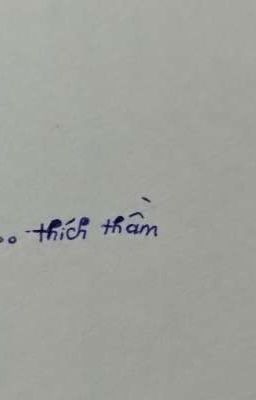 .. thích thầm